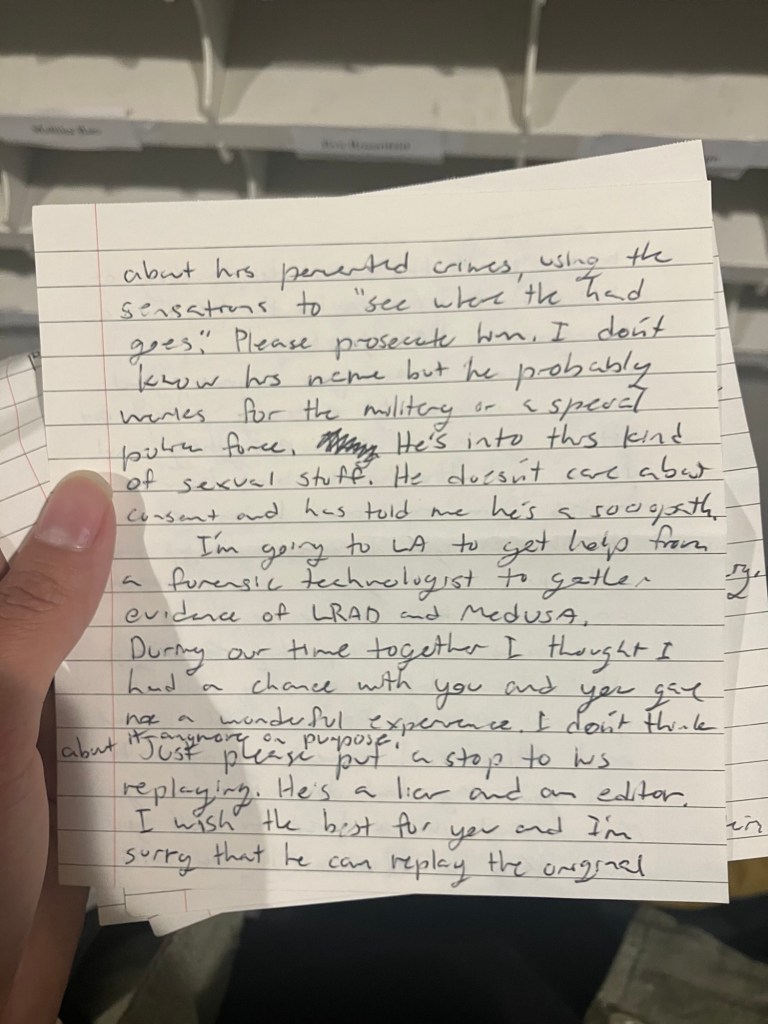 about his perverted crimes, using the
sensations to "see where the had
goes." Please prosecute him. I don't
know his name but he probably
works for the military or a special
police force. He's into this kind
of sexual stuff. He doesn't care about
consent and has told me he's a sociopath.
I'm going to LA to get help from
a forensic technologist to gather
evidence of LRAD and MEDUSA.
During our time together I thought I
had a chance with you and you gave
me a wonderful experience. I don't think
about it anymore on purpose.
Just please put a stop to his
replaying. He's a liar and an editor.
I wish the best for you and I'm
sorry that he can replay the original